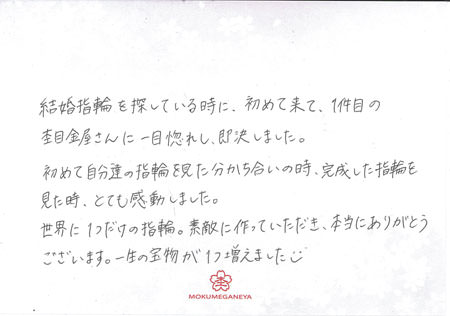 結婚指輪を探している時に、初めて来て、1件目の
杢目金屋さんに一目惚れし、即決しました。
初めて自分達の指輪を見た分かち合いの時、完成した指輪を
見た時、とても感動しました。
世界に1つだけの指輪。素敵に作っていただき、本当にありがとう
ございます。一生の宝物が1つ増えました
MOKUMEGANEYA